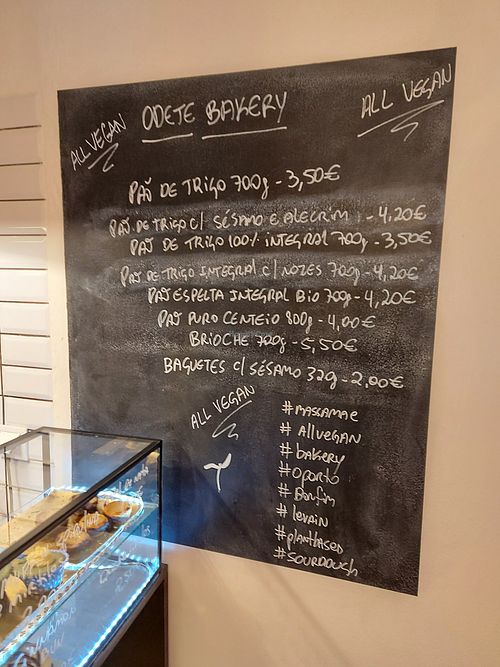 ALL VEGAN
ODETE BAKERY
ALL VEGAN
PÃO DE TRIGO 700g - 3,50€
PÃO DE TRIGO C/ SÉSAMO E ALECRIM - 4,20€
PÃO DE TRIGO 100% INTEGRAL 700g - 3,50€
PÃO DE TRIGO INTEGRAL C/ NOZES 700g - 4,20€
PÃO ESPELTA INTEGRAL BIO 700g - 4,20€
PÃO PURO CENTEIO 800g - 4,00€
BRIOCHE 700g - 5,50€
BAGUETES C/ SÉSAMO 320g - 2,00€
ALL VEGAN
#massamãe
#allvegan
#bakery
#oporto
#Bonfim
#levain
#plantbased
#SOURDOUGH